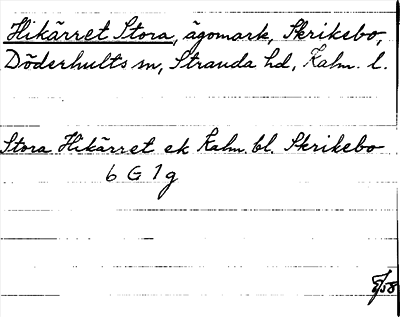 Hikärret Stora, ägomark, Skrikebo,
Döderhults sn, Stranda hd, Kalm. l.
Stora Hikärret ek Kalm. bl. Skrikebo
6 G 1 g